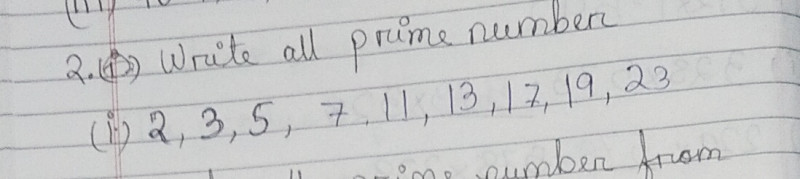 (iii)
2. (i) Write all prime number
(i) 2, 3, 5, 7, 11, 13, 17, 19, 23
prime number from